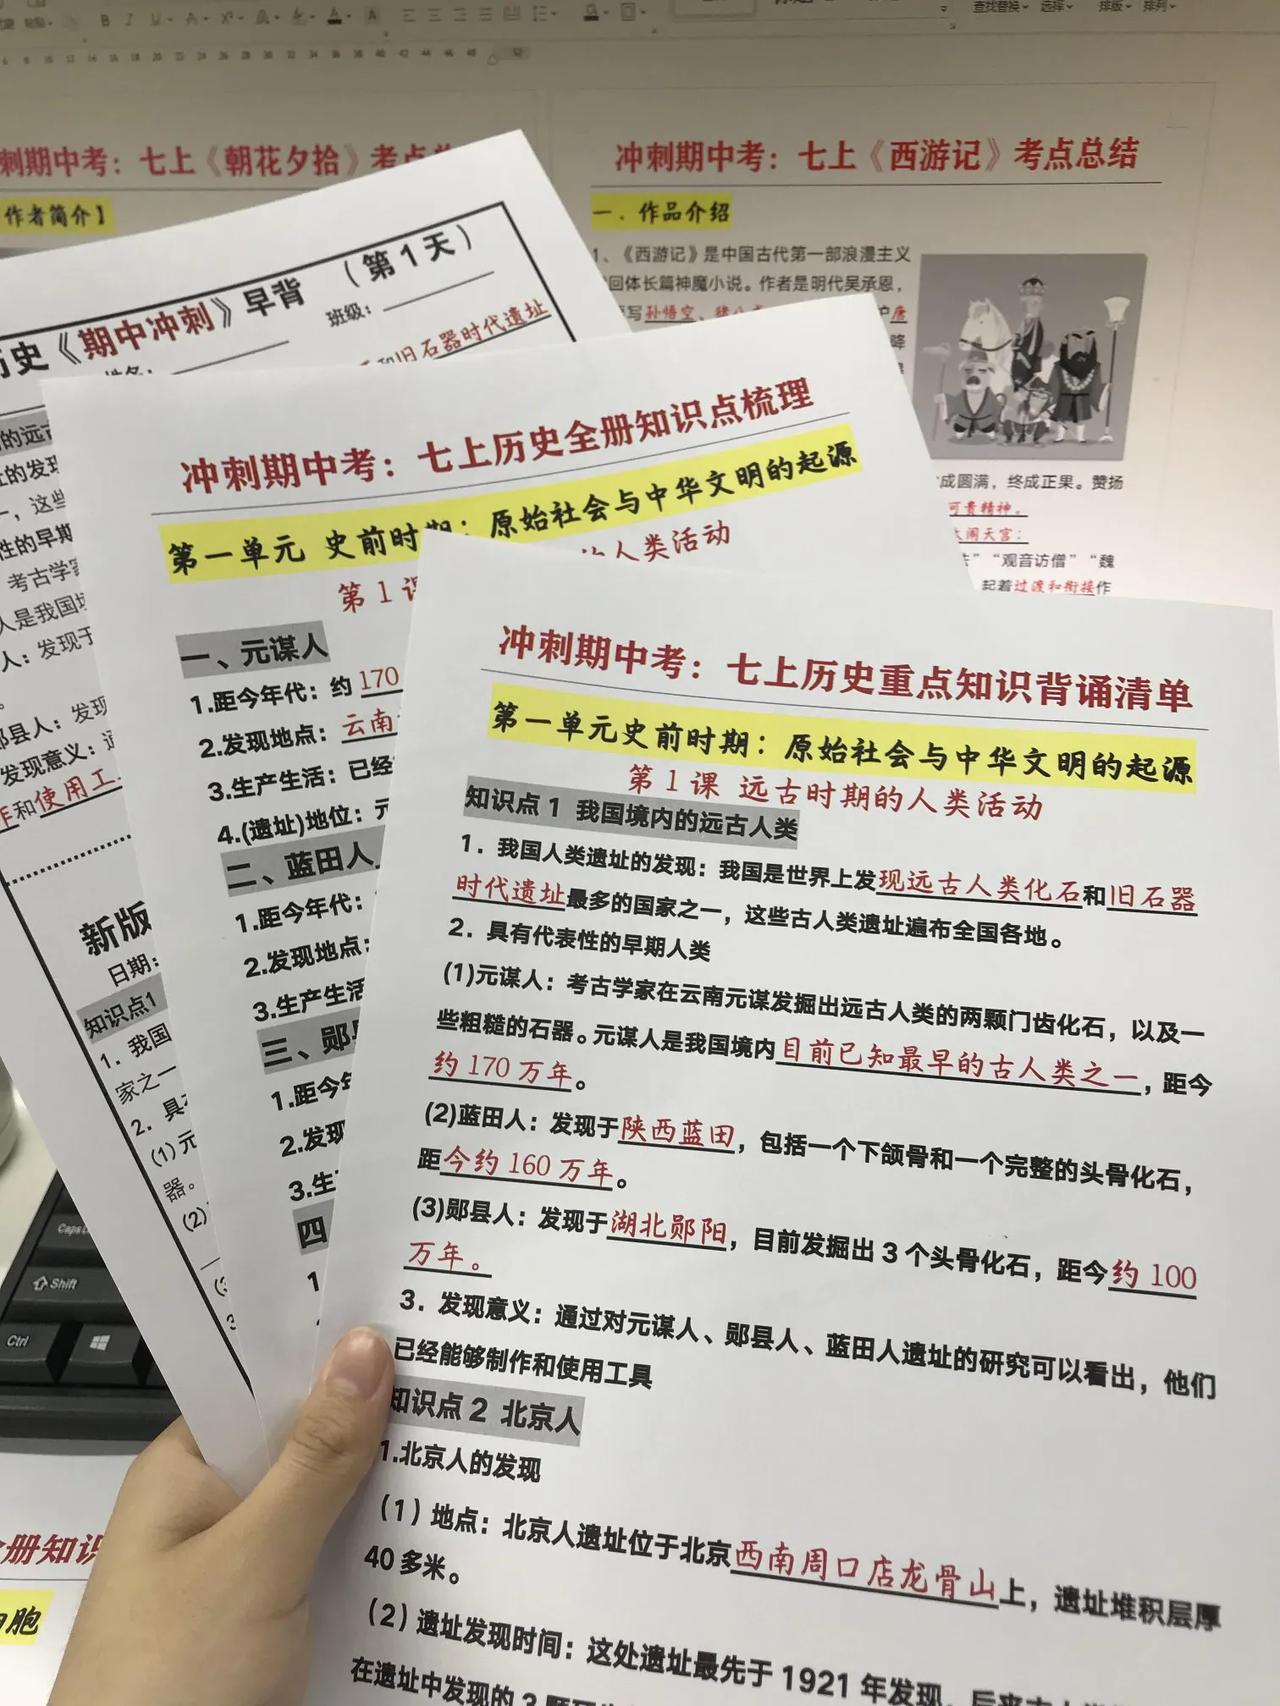 查找替换 选择 排版 排列
冲刺期中考：七上《朝花夕拾》考点
作者简介】
冲刺期中考：七上《西游记》考点总结
一．作品介绍
1、《西游记》是中国古代第一部浪漫主义
回体长篇神魔小说。作者是明代吴承恩，
写孙悟空、
唐
降
成圆满，终成正果。赞扬
可贵精神。
大闹天宫：
”“观音访僧”“魏
起着过渡和衔接作
历史《期中冲刺》早背 （第1天）
班级：
和旧石器时代遗址
的远古
的发现
，这些
性的早期
考古学家
人是我国境
人：发现于
郧县人：发现
发现意义：通
作和使用工
新版
日期：
知识点1
1．我国
家之一
2．具有
(1)元
器。
(2)
冲刺期中考：七上历史全册知识点梳理
第一单元 史前时期：原始社会与中华文明的起源
第1课 的人类活动
一、元谋人
1.距今年代：约170
2.发现地点：云南
3.生产生活：已经
4.(遗址)地位：元
二、蓝田人
1.距今年代：
2.发现地点：
3.生产生活
三、郧县
1.距今年
2.发现
3.生
四
1
冲刺期中考：七上历史重点知识背诵清单
第一单元史前时期：原始社会与中华文明的起源
第1课 远古时期的人类活动
知识点1 我国境内的远古人类
1．我国人类遗址的发现：我国是世界上发现远古人类化石和旧石器
时代遗址最多的国家之一，这些古人类遗址遍布全国各地。
2．具有代表性的早期人类
(1)元谋人：考古学家在云南元谋发掘出远古人类的两颗门齿化石，以及一
些粗糙的石器。元谋人是我国境内目前已知最早的古人类之一，距今
约170万年。
(2)蓝田人：发现于陕西蓝田，包括一个下颌骨和一个完整的头骨化石，
距今约160万年。
(3)郧县人：发现于湖北郧阳，目前发掘出3个头骨化石，距今约100
万年。
3．发现意义：通过对元谋人、郧县人、蓝田人遗址的研究可以看出，他们
已经能够制作和使用工具
知识点2 北京人
1.北京人的发现
（1）地点：北京人遗址位于北京西南周口店龙骨山上，遗址堆积层厚
40多米。
（2）遗址发现时间：这处遗址最先于1921年发现，后来
在遗址中发现的3颗
Caps
Shift
Ctrl
册知识
胞